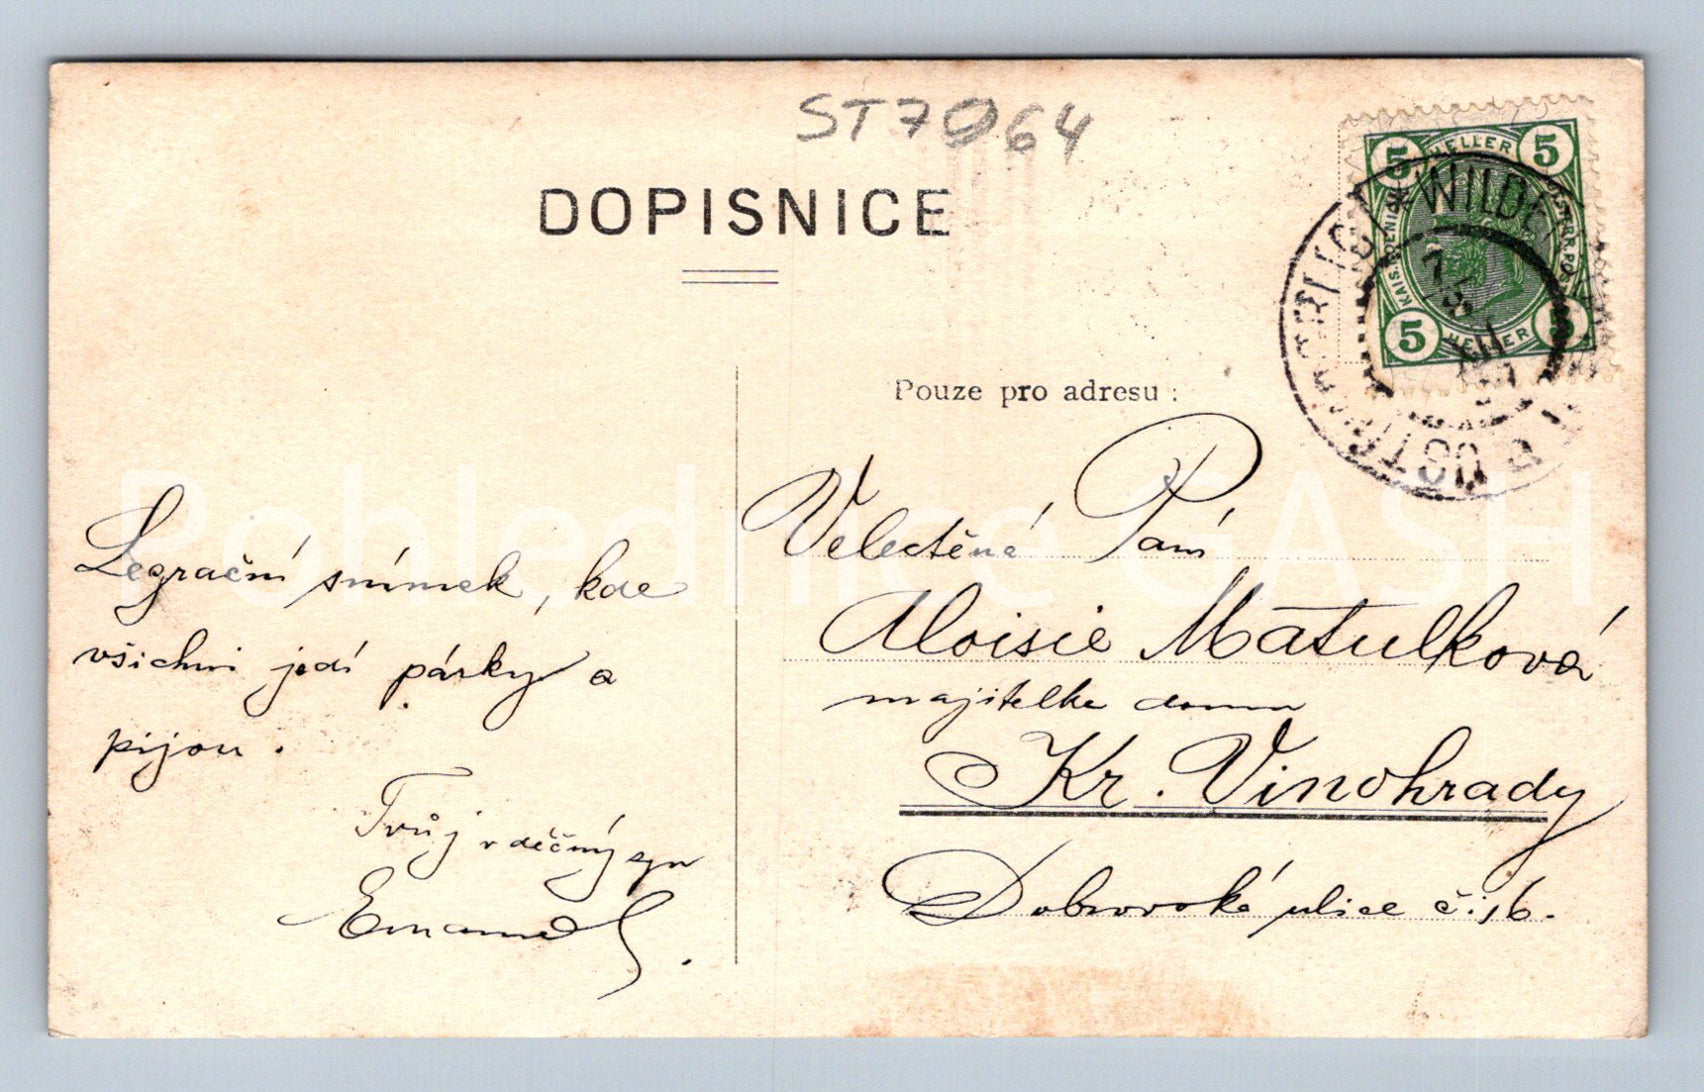 ST7964
DOPISNICE
5 HELLER 5
KAIS. KOENIG. OESTERR. POST
5 HELLER 5
WILDE
Pouze pro adresu :
Pohlednice SASH
Legrační snímek, kde
všichni jedí párky a
pijou.
Tvůj vděčný syn
Emanuel.
Veletěná Paní
Aloisie Matulková
majitelka domu
Kr. Vinohrady
Dobrovská ulice č. 16.